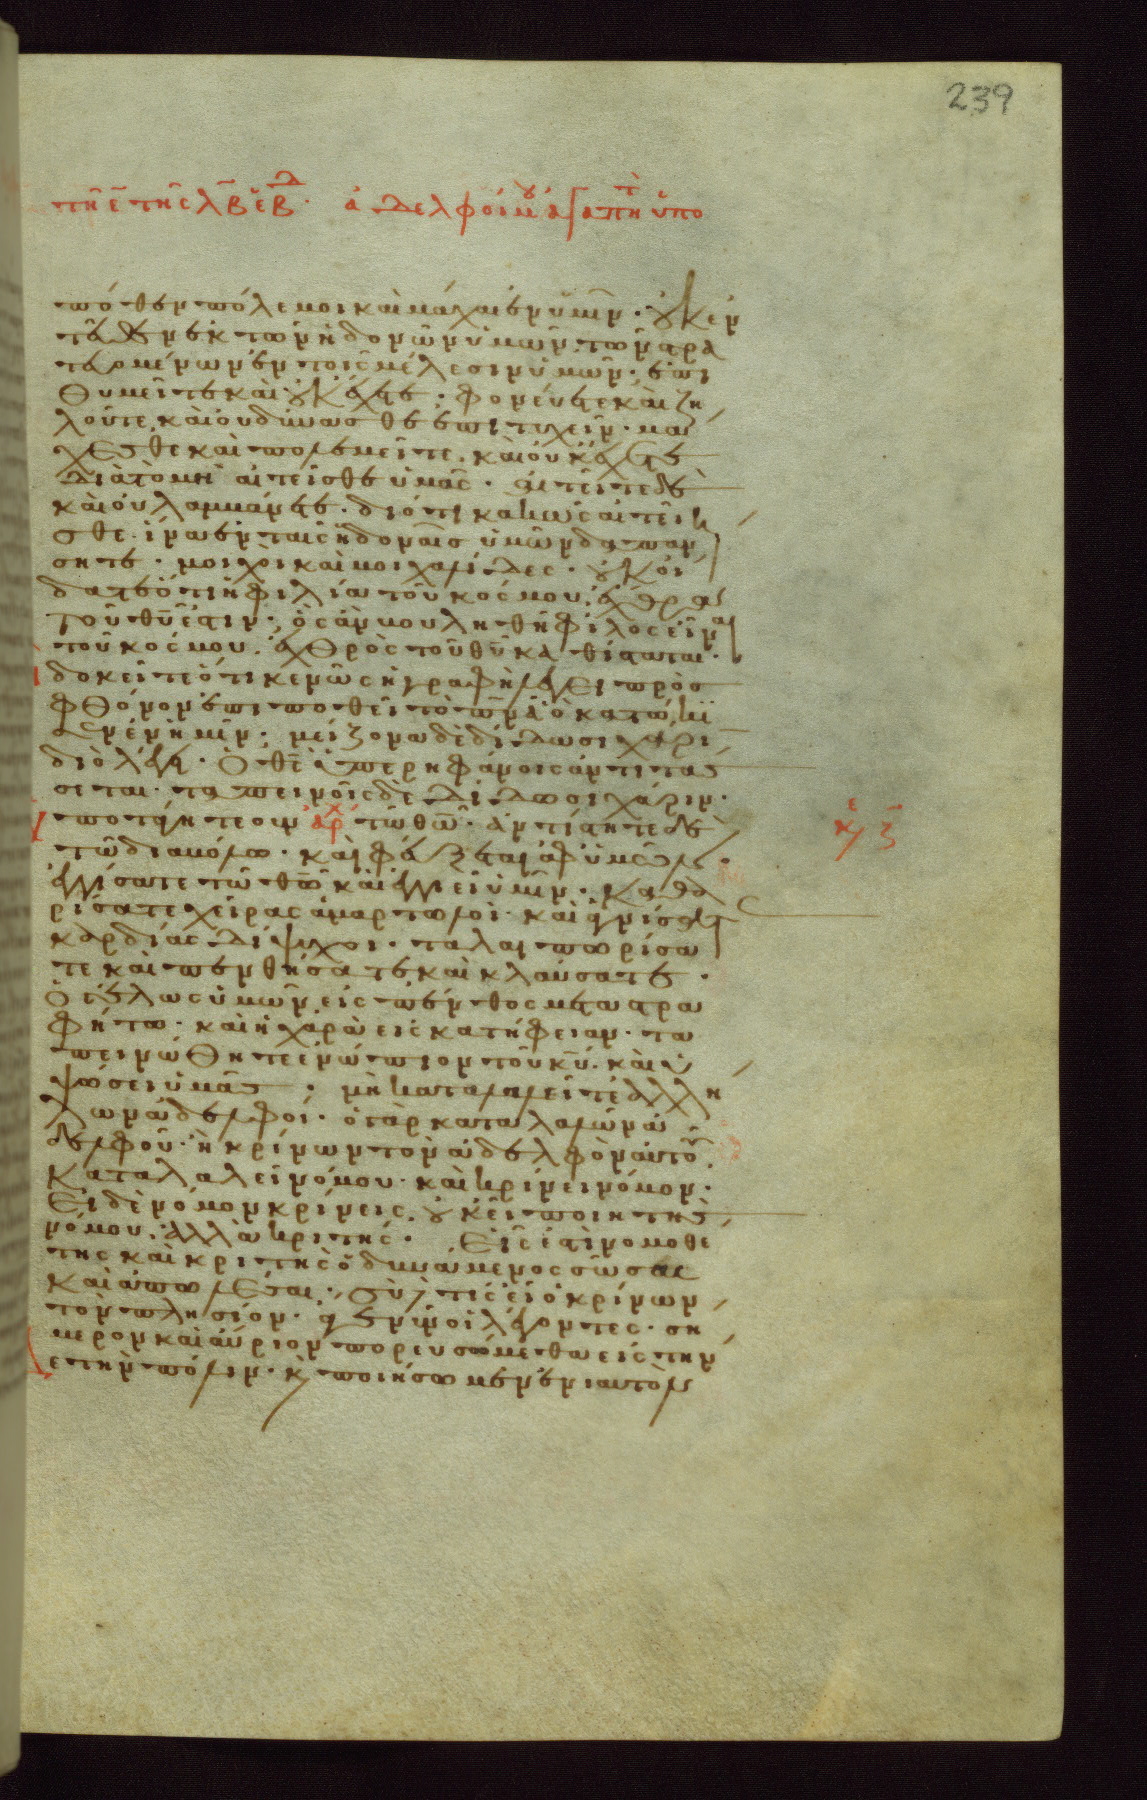 239
τῆ ε̄ τῆς λβ ἑβδ. ἀδελφοί μου ἀγαπητοί ὑπο
πόθεν πόλεμοι καὶ μάχαι ἐν ὑμῖν. οὐκ ἐν
τεῦθεν ἐκ τῶν ἡδονῶν ὑμῶν τῶν στρα
τευομένων ἐν τοῖς μέλεσιν ὑμῶν. ἐπι
θυμεῖτε καὶ οὐκ ἔχετε. φονεύετε καὶ ζη
λοῦτε, καὶ οὐ δύνασθε ἐπιτυχεῖν. μα
χεσθε καὶ πολεμεῖτε. καὶ οὐκ ἔχετε
διὰ τὸ μὴ αἰτεῖσθε ὑμᾶς. αἰτεῖτε δὲ
καὶ οὐ λαμμάνετε. διότι κακῶς αἰτεῖ
σθε. ἵνα ἐν ταῖς ἡδοναῖς ὑμῶν δαπαν
σητε. μοιχοὶ καὶ μοιχαλίδες. οὐκ οἴ
δατε ὅτι ἡ φιλία τοῦ κόσμου. ἔχθρα
τοῦ θῦ ἐστιν. ὃς ἂν βουληθῆ φίλος εἶναι
τοῦ κόσμου. ἐχθρὸς τοῦ θῦ καθίσταται.
δοκεῖτε ὅτι κενῶς ἡ γραφὴ λέγει πρὸς
φθόνον ἐπιποθεῖ τὸ πνᾶ ὃ κατώκι
σεν ἐν ἡμῖν. μείζονα δὲ δίδωσι χάρι
διὸ λέγει. ὁ θς̄ ὑπερηφάνοις ἀντιτάσ
σεται. ταπεινοῖς δὲ δίδωσι χάριν.
ὑποτάγητε οὖν ἀρχ τῶ θῶ. ἀντίστητε δὲ
τῶ διαβόλω. καὶ φεύξεται ἀφ' ὑμῶν.
ἐγγίσατε τῶ θῶ καὶ ἐγγιεῖ ὑμῖν. καθα
ρίσατε χεῖρας ἁμαρτωλοί. καὶ ἁγνίσατε
καρδίας δίψυχοι. ταλαιπωρίσα
τε καὶ πενθήσατε καὶ κλαύσατε.
ὁ γέλως ὑμῶν εἰς πένθος μεταστρα
φήτω. καὶ ἡ χαρὰ εἰς κατήφειαν. τα
πεινώθητε ἐνώπιον τοῦ κῦ. καὶ ὑ
ψώσει ὑμᾶς. μὴ καταλαλεῖτε ἀλλή
λων ἀδελφοί. ὁ γὰρ καταλαλῶν ἀ
δελφοῦ. ἢ κρίνων τὸν ἀδελφὸν αὐτοῦ.
καταλαλεῖ νόμου. καὶ κρίνει νόμον.
εἰ δὲ νόμον κρίνεις. οὐκ εἶ ποιητὴς
νόμου. ἀλλὰ κριτής. εἷς ἐστι νομοθέ
της καὶ κριτὴς ὁ δυνάμενος σῶσαι
καὶ ἀπολέσαι. σὺ τίς εἶ ὁ κρίνων
τὸν πλησίον. ἄγε νῦν οἱ λέγοντες. ση
μερον καὶ αὔριον πορευσώμεθα εἰς τήν
δε τὴν πόλιν. κ ποιήσωμεν ἐνιαυτὸν